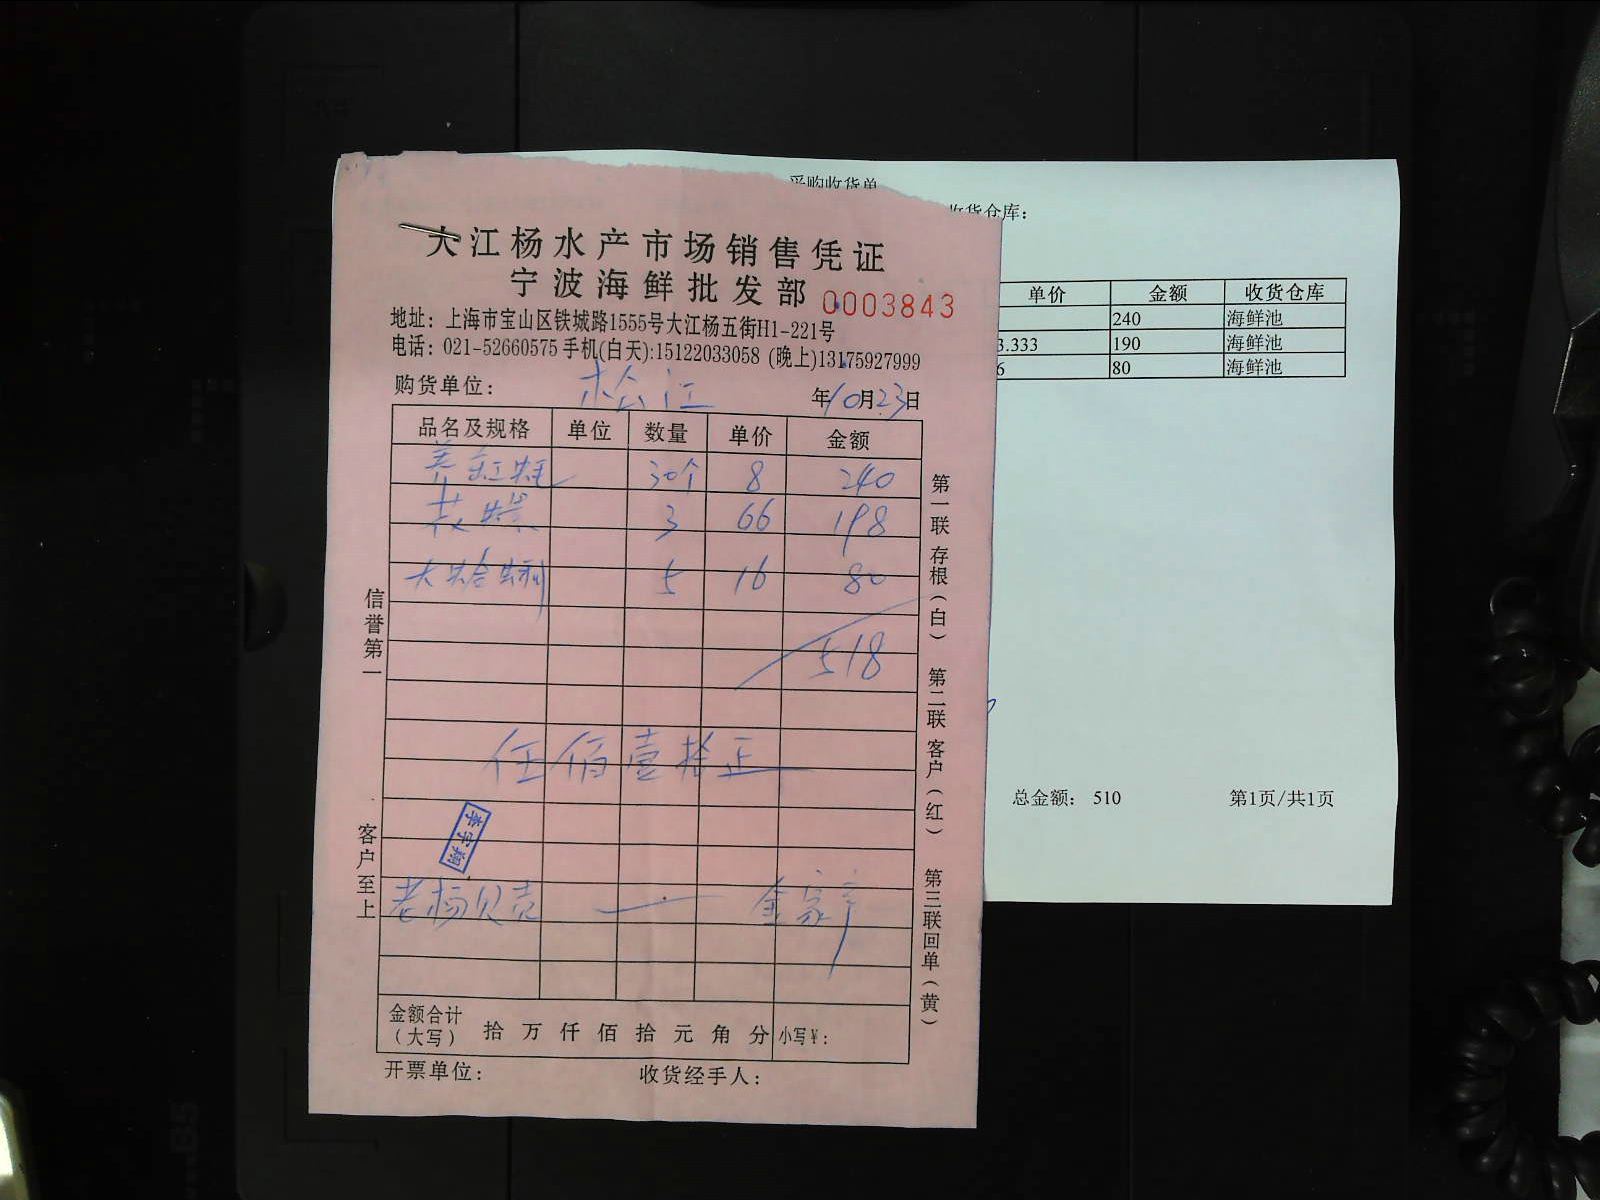 采购收货单
收货仓库:
大江杨水产市场销售凭证
宁波海鲜批发部 0003843
地址：上海市宝山区铁城路1555号大江杨五街H1-221号
电话：021-52660575 手机(白天):15122033058 (晚上)13175927999
购货单位： 松江 年10月23日
品名及规格 单位 数量 单价 金额
30个 8 240
花螺 3 66 198
大蛤蜊 5 16 80
518
伍佰壹拾正
李宇翔
老杨贝壳 — 金家
金额合计（大写） 拾 万 仟 佰 拾 元 角 分 小写￥：
开票单位： 收货经手人：
信誉第一
客户至上
第一联存根（白） 第二联客户（红） 第三联回单（黄）
单价 金额 收货仓库
240 海鲜池
3.333 190 海鲜池
6 80 海鲜池
总金额： 510 第1页/共1页